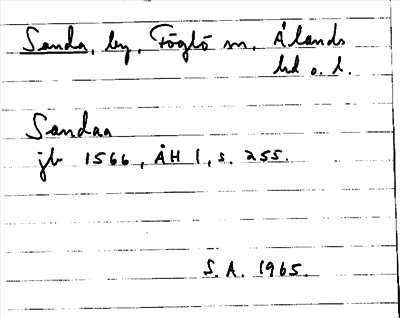 Sanda, by, Föglö sn, Ålands
hd o. l.
Sandaa
jb 1566, ÅH 1, s. 255.
S.A. 1965.